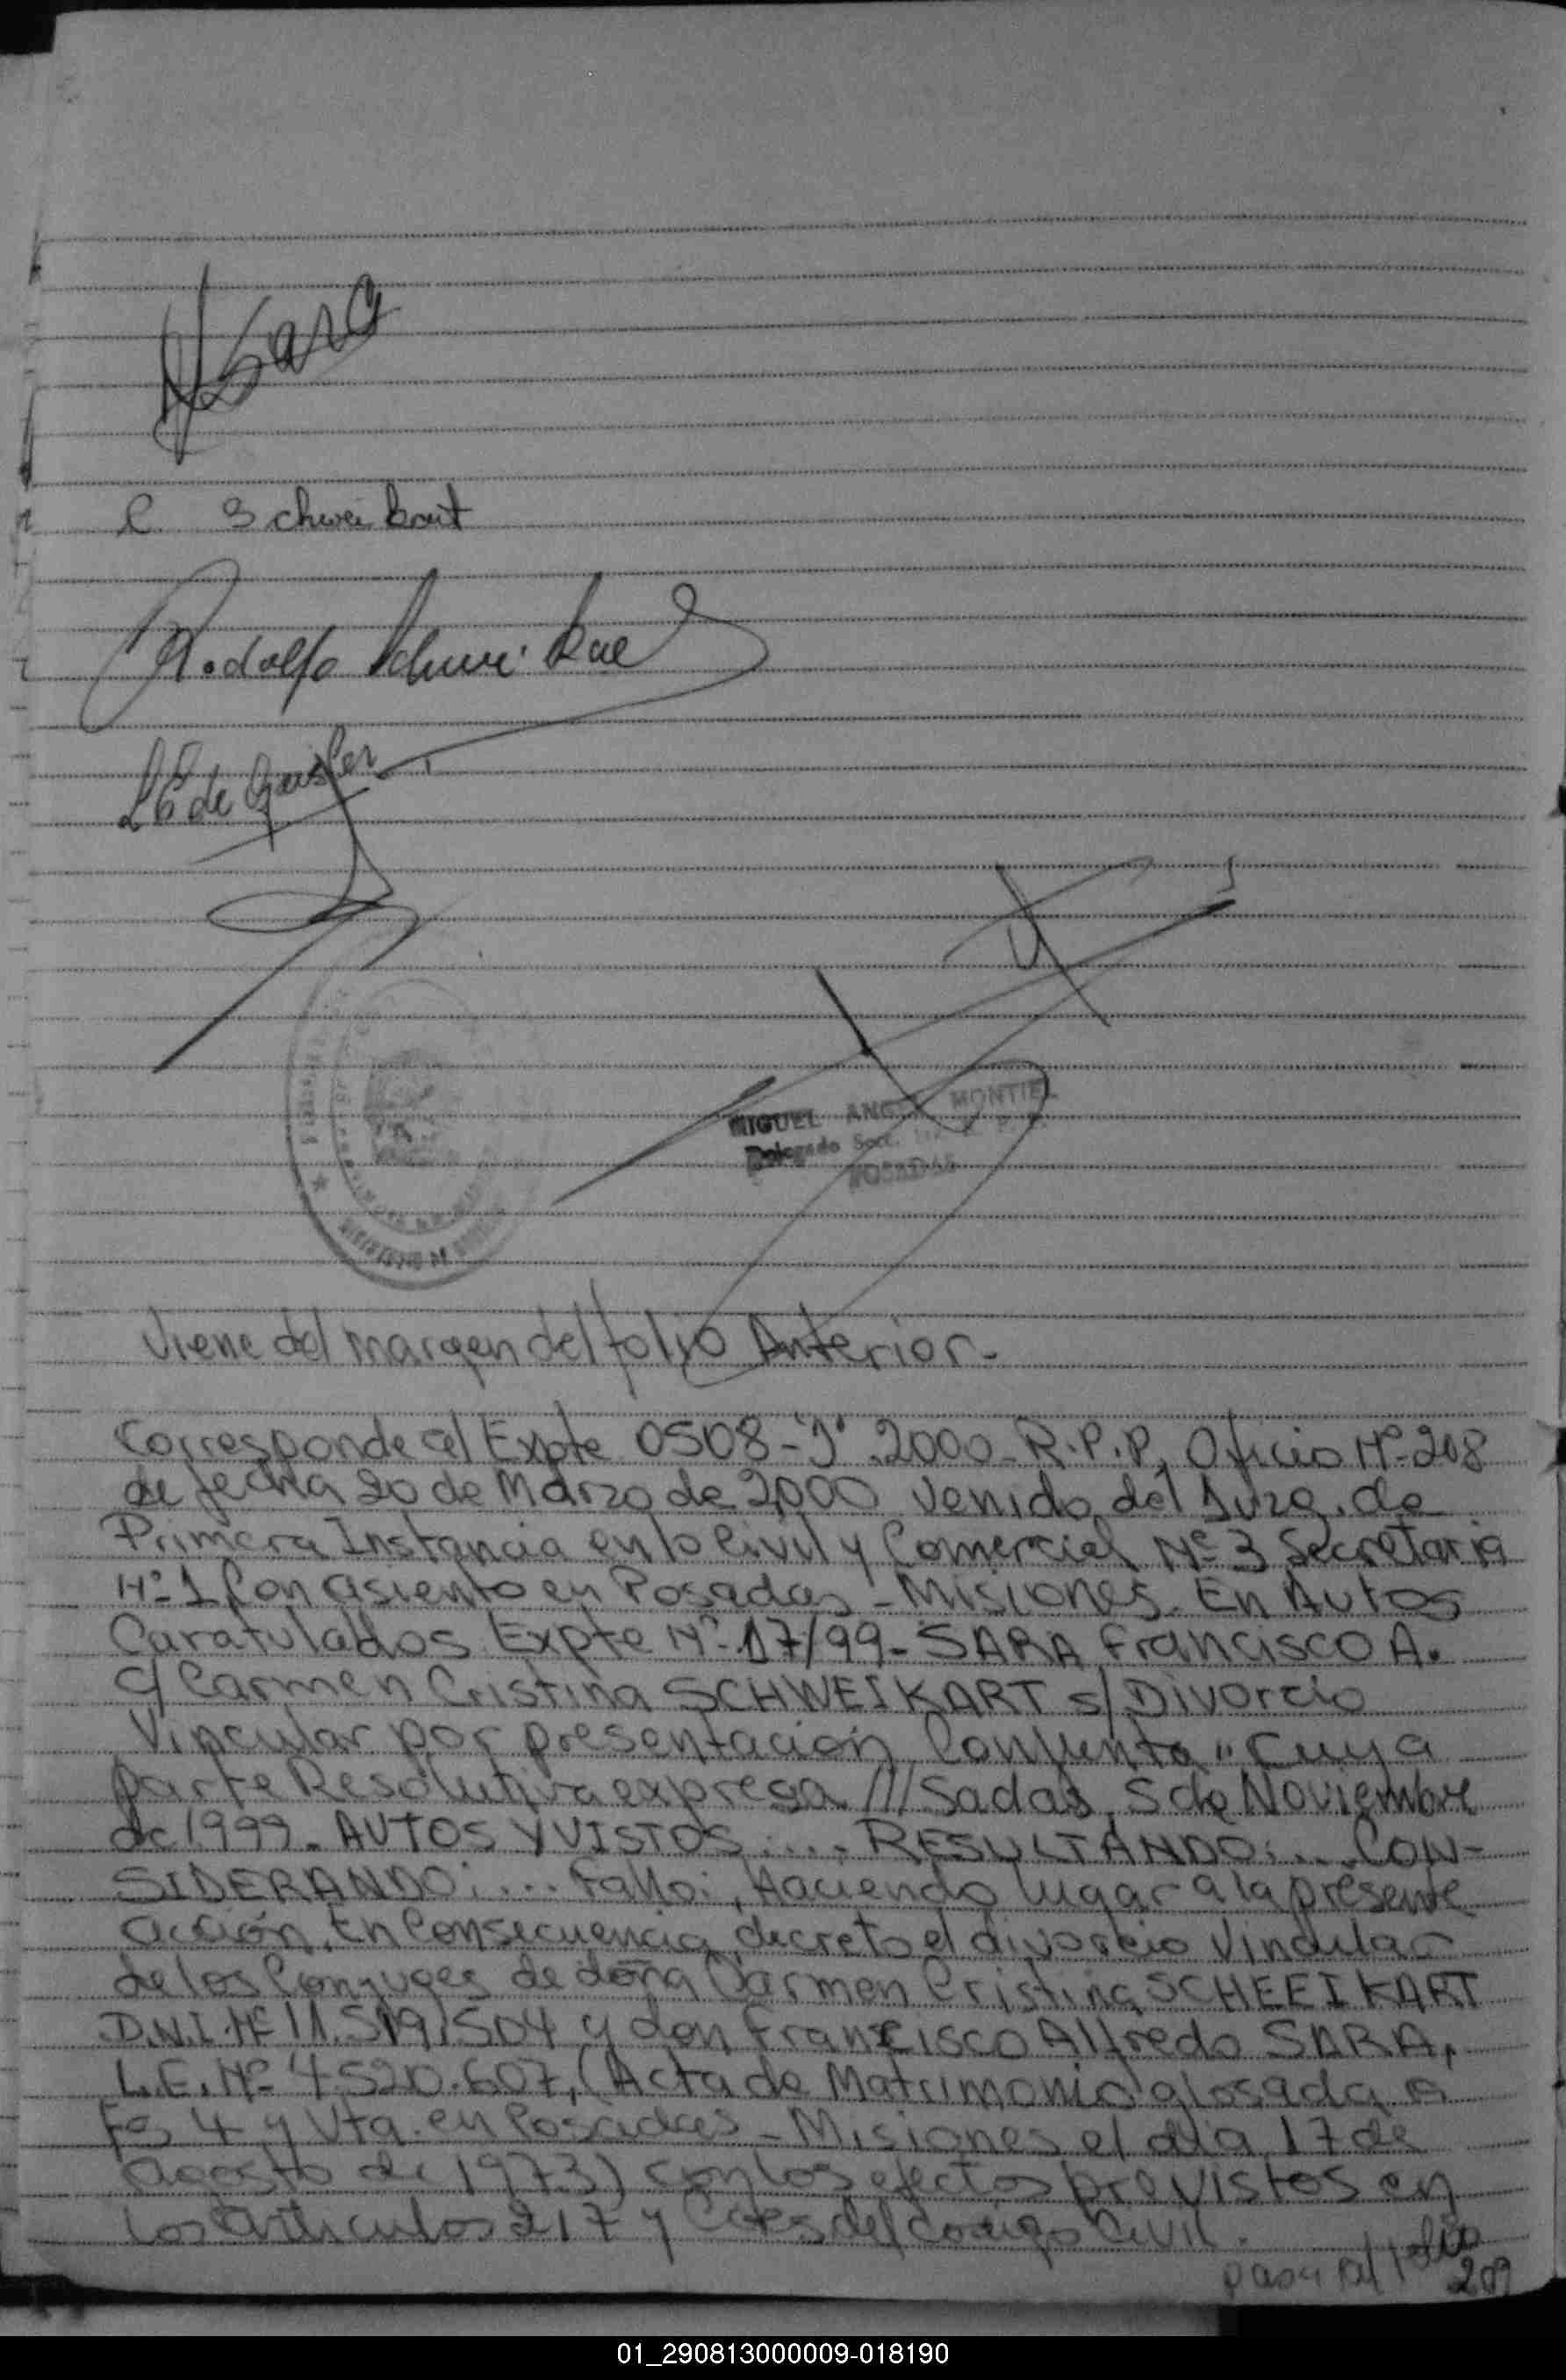 Sara
C. Schweikart
Rodolfo
de
MIGUEL ANGEL MONTIEL
Delegado Secc.
POSADAS
MINISTERIO DE
Viene del margen del folio Anterior.-
Corresponde al Expte 0508-"J".2000-R.P.P, Oficio Nº-208
de fecha 20 de Marzo de 2000 venido del Juzg. de
Primera Instancia en lo Civil y Comercial Nº 3 Secretaria
Nº-1 Con asiento en Posadas - Misiones. En Autos
Caratulados Expte Nº-17/99- SARA Francisco A.
c/ Carmen Cristina SCHWEIKART s/ Divorcio
Vincular por presentación Conjunta" Cuya
parte Resolutiva expresa ///Sadas, 5 de Noviembre
de 1999. AUTOS Y VISTOS:.... RESULTANDO:.... CON-
SIDERANDO:... Fallo:, Haciendo lugar a la presente
acción. En Consecuencia decreto el divorcio Vincular
de los Conyuges de doña Carmen Cristina SCHEEIKART
D.N.I. Nº 11.519.504 y don Francisco Alfredo SARA,
L.E. Nº- 4.520.607, (Acta de Matrimonio glosada a
Fs 4 y Vta. en Posadas - Misiones el día 17 de
agosto de 1973) con los efectos previstos en
los artículos 217 y Ccts del codigo Civil.
pasa al folio
209
01_290813000009-018190